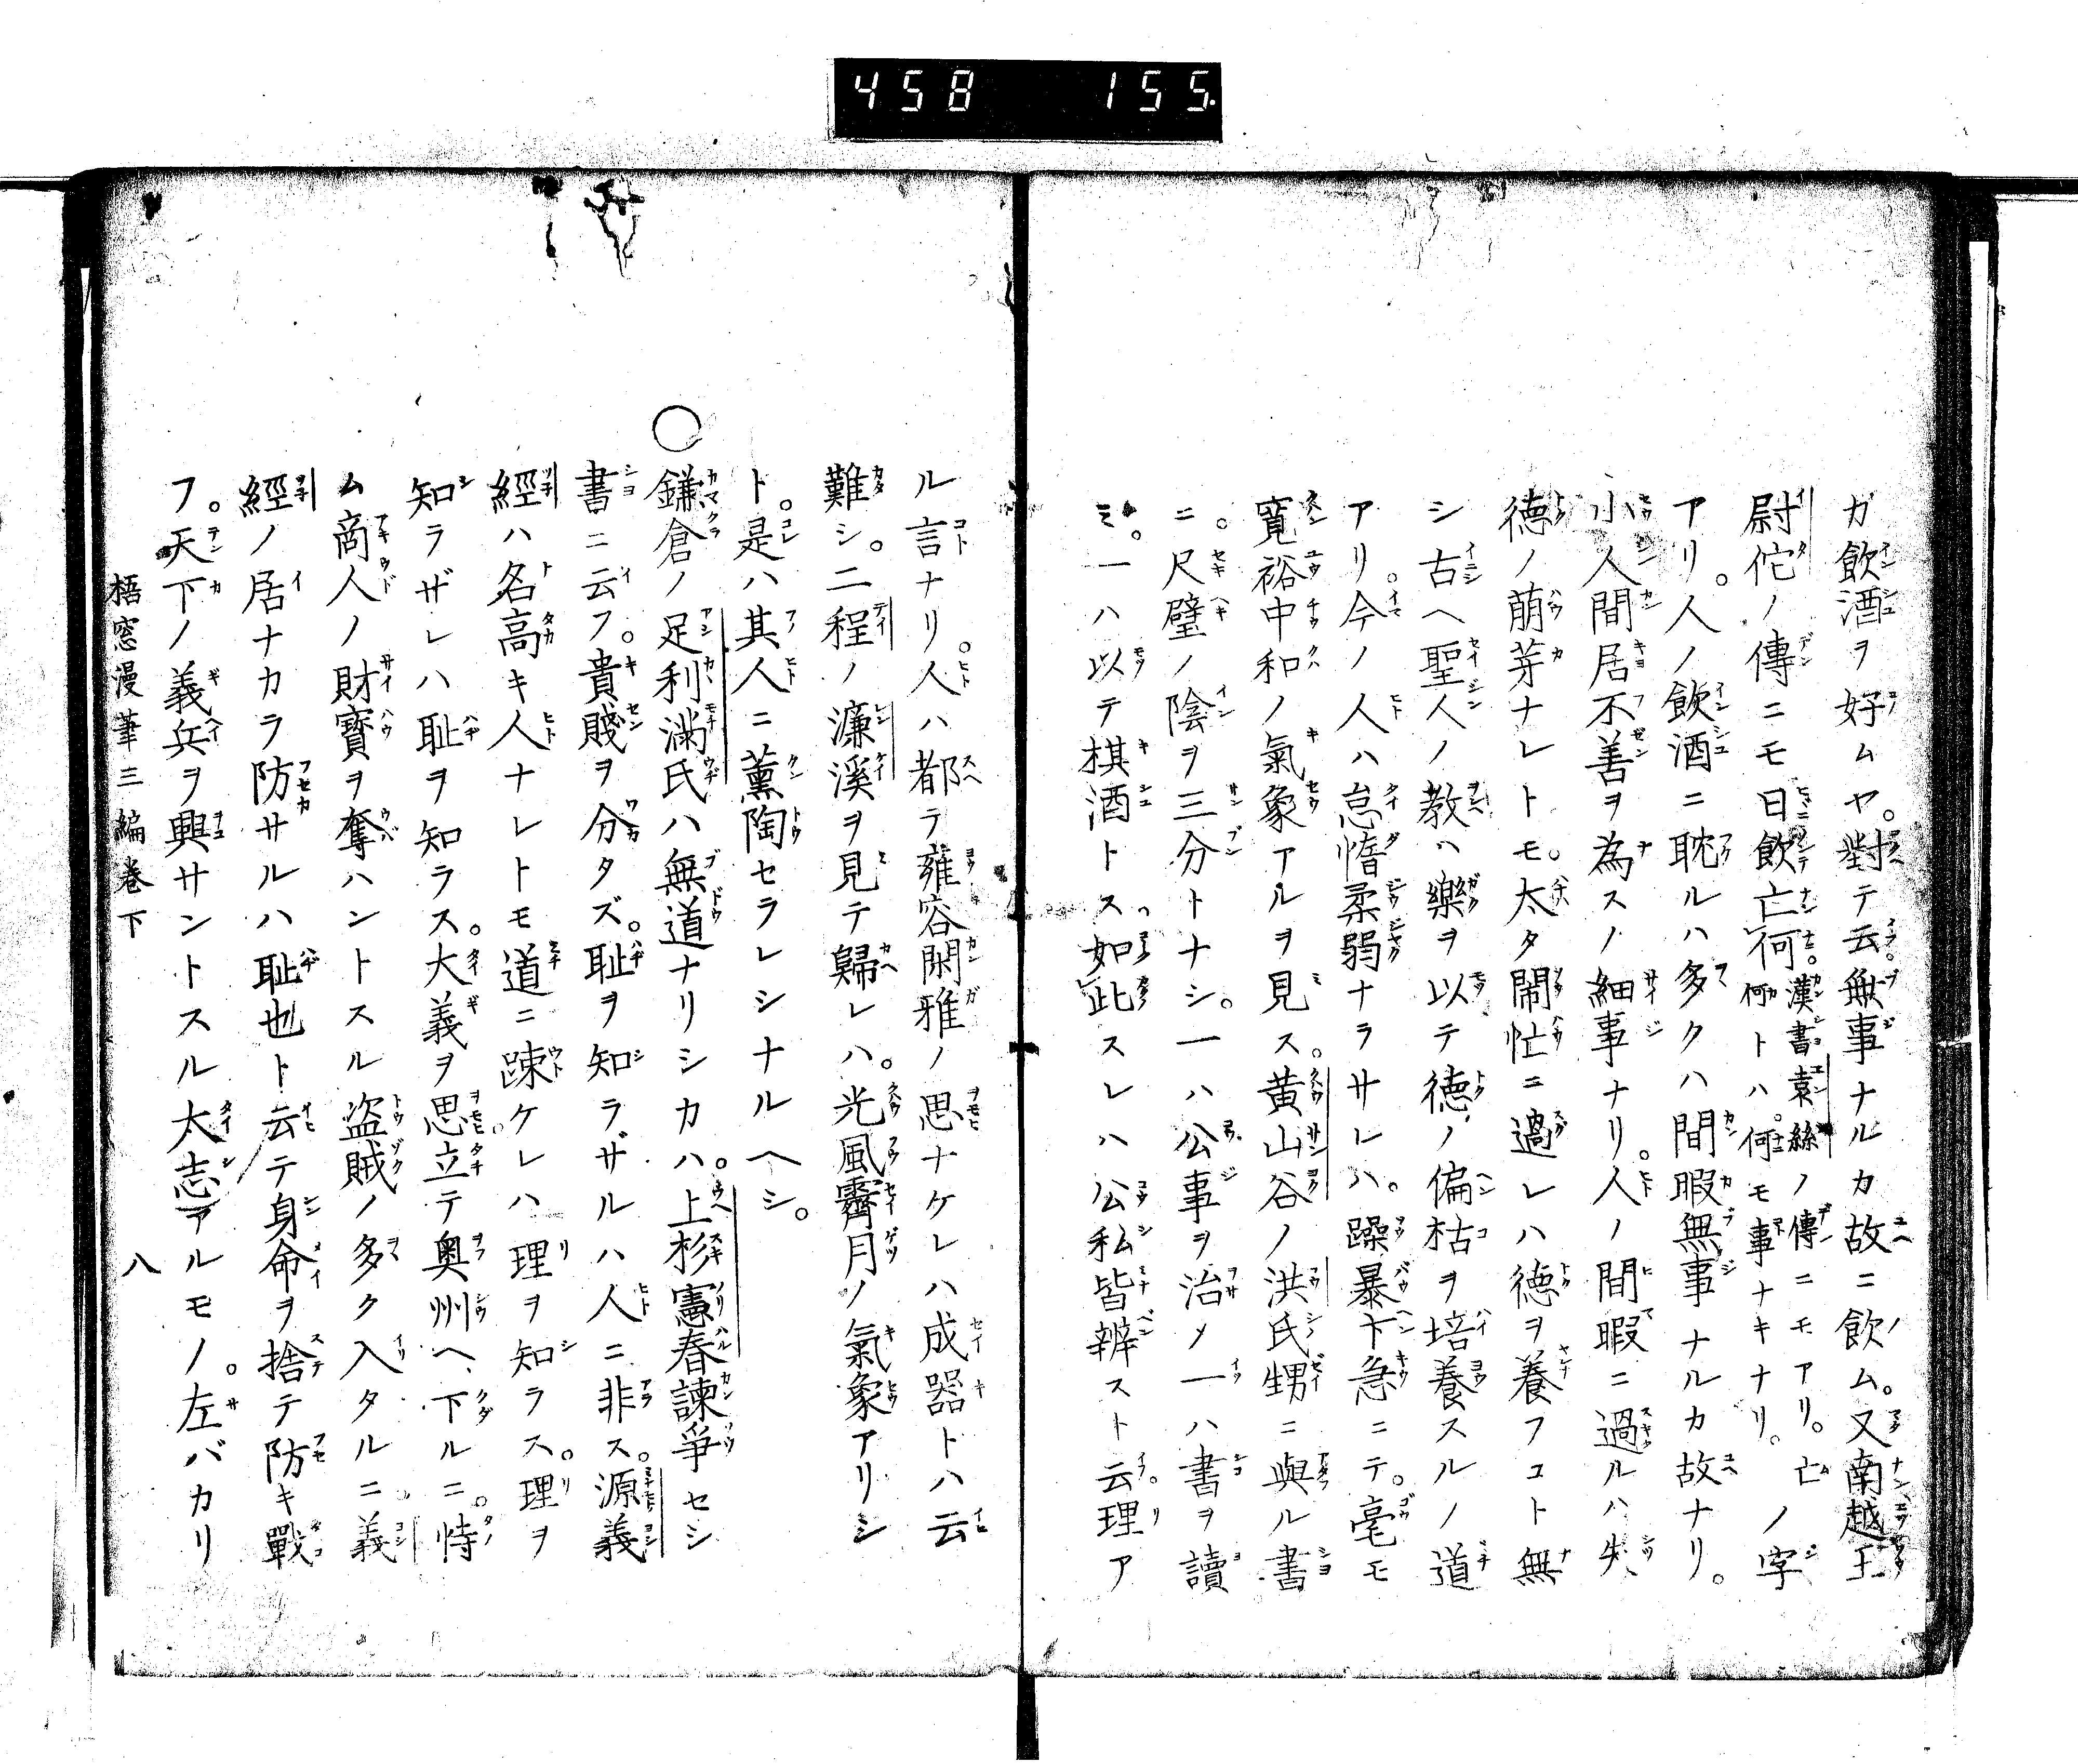 458 155
ガ飲酒ヲ好ムヤ。對テ云。無事ナルカ故ニ飲ム。又南越王
尉佗ノ傳ニモ日飲亡何。漢書袁絲ノ傳ニモアリ。亡ノ字
何トハ。何モ事ナキナリ。
アリ。人ノ飲酒ニ耽ルハ多クハ間暇無事ナルカ故ナリ。
小人間居不善ヲ為スノ細事ナリ。人ノ間暇ニ過ルハ失
徳ノ萠芽ナレトモ。太タ閙忙ニ過レハ徳ヲ養フコト無
シ古ヘ聖人ノ教ハ樂ヲ以テ徳ノ偏枯ヲ培養スルノ道
アリ。今ノ人ハ怠惰柔弱ナラサレハ。躁暴卞急ニテ。毫モ
寛裕中和ノ氣象アルヲ見ス。黄山谷ノ洪氏甥ニ與ル書
ニ。尺璧ノ陰ヲ三分トナシ。一ハ公事ヲ治メ一ハ書ヲ讀
ミ。一ハ以テ棋酒トス如此スレハ公私皆辨スト云理ア
ル言ナリ。人ハ都テ雍容閑雅ノ思ナケレハ成器トハ云
難シ。二程ノ濂溪ヲ見テ歸レハ。光風霽月ノ氣象アリシ
ト。是ハ其人ニ薫陶セラレシナルヘシ。
○鎌倉ノ足利滿氏ハ無道ナリシカハ。上杉憲春諫爭セシ
書ニ云フ。貴賤ヲ分タズ。耻ヲ知ラザルハ人ニ非ス。源義
經ハ名高キ人ナレトモ道ニ踈ケレハ理ヲ知ラス。理ヲ
知ラザレハ耻ヲ知ラス。大義ヲ思立テ奥州ヘ下ルニ。恃
ム商人ノ財寳ヲ奪ハントスル盗賊ノ多ク入タルニ義
經ノ居ナカラ防サルハ耻也ト云テ身命ヲ捨テ防キ戰
フ。天下ノ義兵ヲ興サントスル太志アルモノ。左バカリ
梧窓漫筆三編巻下 八